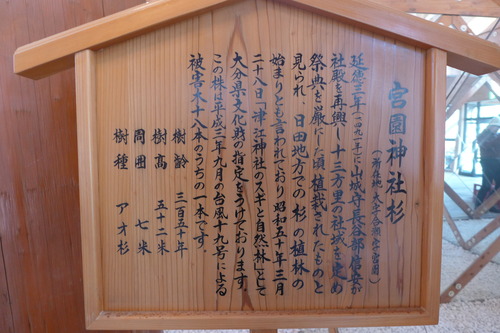 宮園神社杉
(所在地 大字合瀬字宮園)
延徳三年(一四九一)に山城守長谷部信安が
社殿を再興し十三方里の社域を定め
祭典を厳にした頃植栽されたものと
見られ、日田地方での杉の植林の
始まりとも言われており昭和五十年三月
二十八日「津江神社のスギと自然林」として
大分県文化財の指定をうけております。
この株は平成三年九月の台風十九号による
被害木十八本のうちの一本です。
樹齢 三百五十年
樹高 五十二米
周囲 七米
樹種 アオ杉